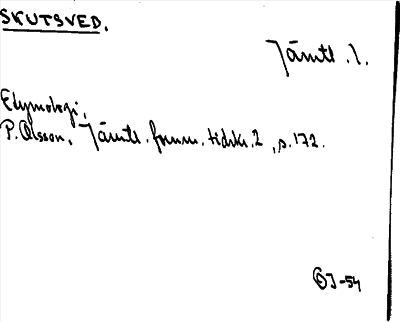 SKUTSVED.
Jämtl. l.
Etymologi,
P. Olsson, Jämtl. fornm. tidskr. 2, s. 172.
ÖJ-54